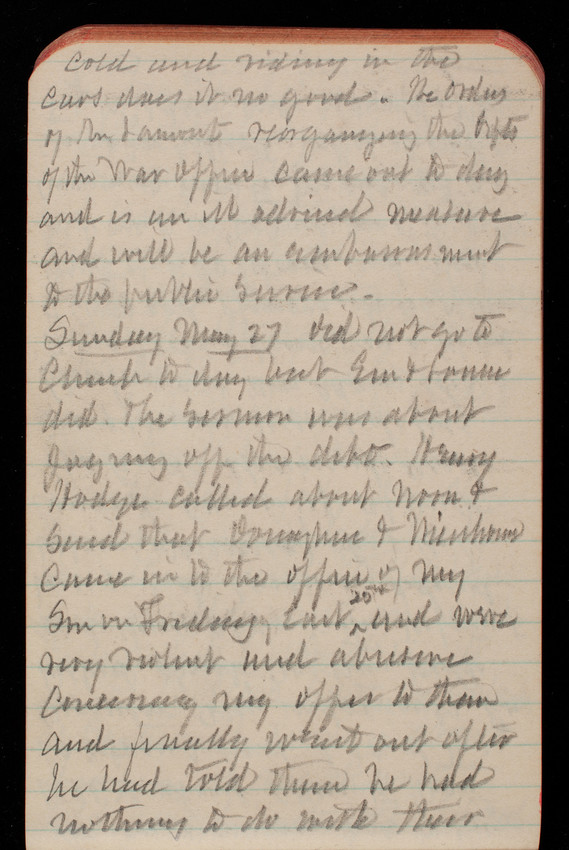 cold and riding in the
cars does it no good. The orders
of Mr Lamont reorganizing the
of the War Office came out to day
and is an ill advised measure
and will be an embarrasment
to the public service.
Sunday May 27 did not go to
Church to day but Em &
did. The Sermon was about
paying off the debt. Henry
Hodge called about noon &
said that &
came in to the office of my
Son on Friday last 25th and were
very violent and abusive
concerning my offer to them
and finally went out after
he had told them he had
nothing to do with their